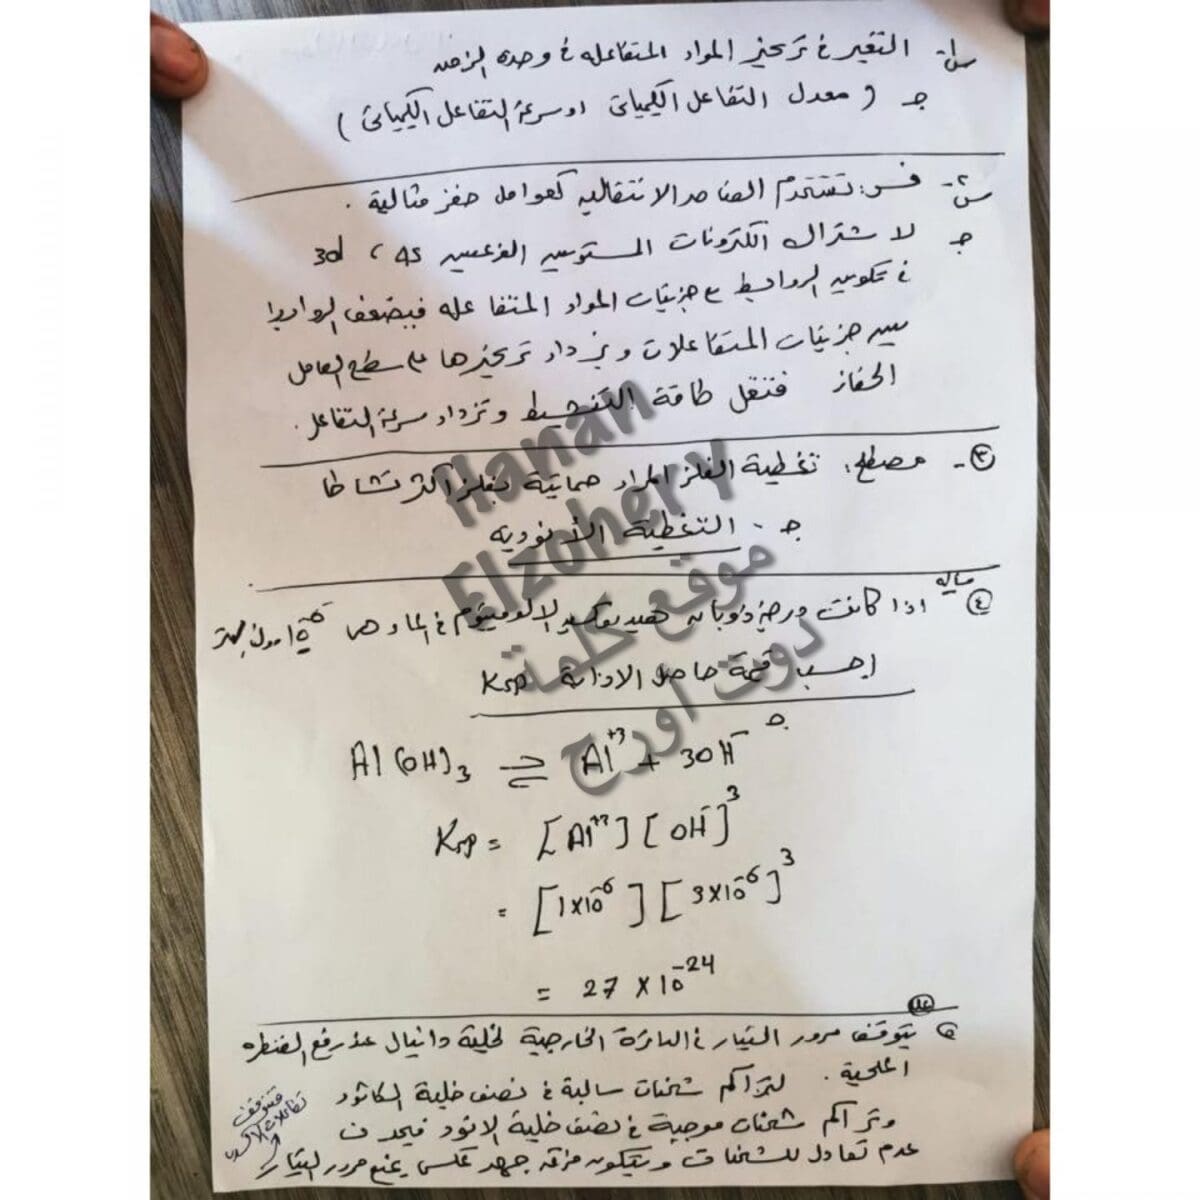 س١- التغير في تركيز المواد المتفاعله في وحدة الزمن
جـ ( معدل التفاعل الكيميائى او سرعة التفاعل الكيميائى )
س٢- فسر: تستخدم العناصر الانتقاليه كعوامل حفز مثالية .
جـ لاشتراك الكترونات المستويين الفرعيين 4s ، 3d
في تكوين الروابط مع جزيئات المواد المتفاعله فيضعف الروابط
بين جزيئات المتفاعلات ويزداد تركيزها على سطح العامل
الحفاز فتقل طاقة التنشيط وتزداد سرعة التفاعل .
٣- مصطلح: تغطية الفلز المراد حمايتة بفلز اكثر نشاطا
جـ - التغطية الأنوديه
٤ مساله اذا كانت درجة ذوبان هيدروكسيد الالومنيوم في الماء هى 10⁻⁶ مول/لتر
احسب قيمة حاصل الاذابة Ksp
جـ
Al(OH)₃ ⇌ Al⁺³ + 3OH⁻
Ksp = [Al⁺³] [OH⁻]³
= [1×10⁻⁶] [3×10⁻⁶]³
= 27 × 10⁻²⁴
علل
٥ يتوقف مرور التيار في الدائرة الخارجية لخلية دانيال عند رفع القنطره
الملحية . لتراكم شحنات سالبة في نصف خلية الكاثود
وتراكم شحنات موجبة في نصف خلية الانود فيحدث
عدم تعادل للشحنات ويتكون فرق جهد عكسى يمنع مرور التيار
فتتوقف
تفاعلات
Hanan
Elzohery
موقع كلمة
دوت أورج